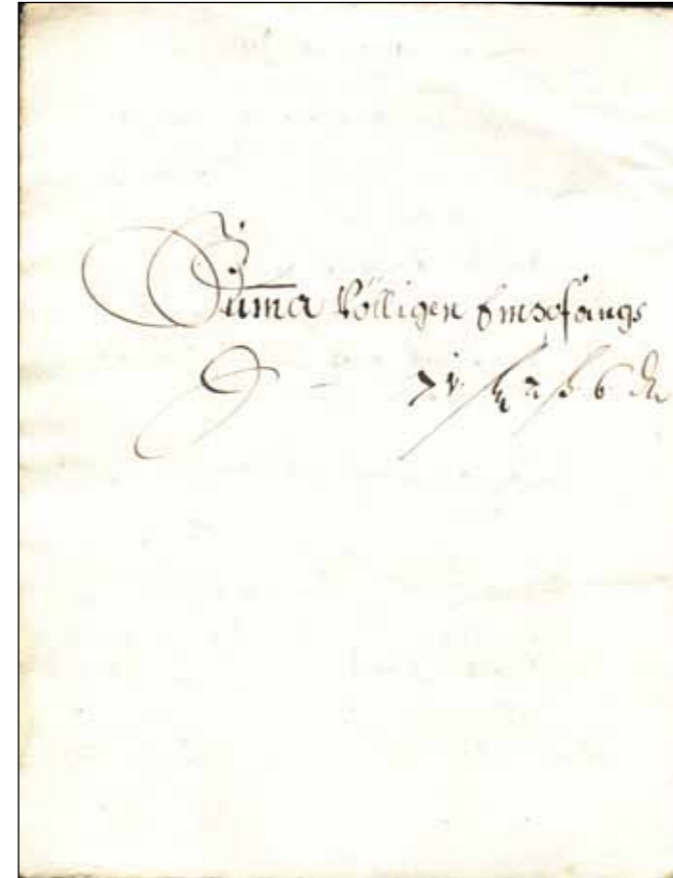 Sum̅a Völligen Empfangs
71 fl 2 ß 6 dn